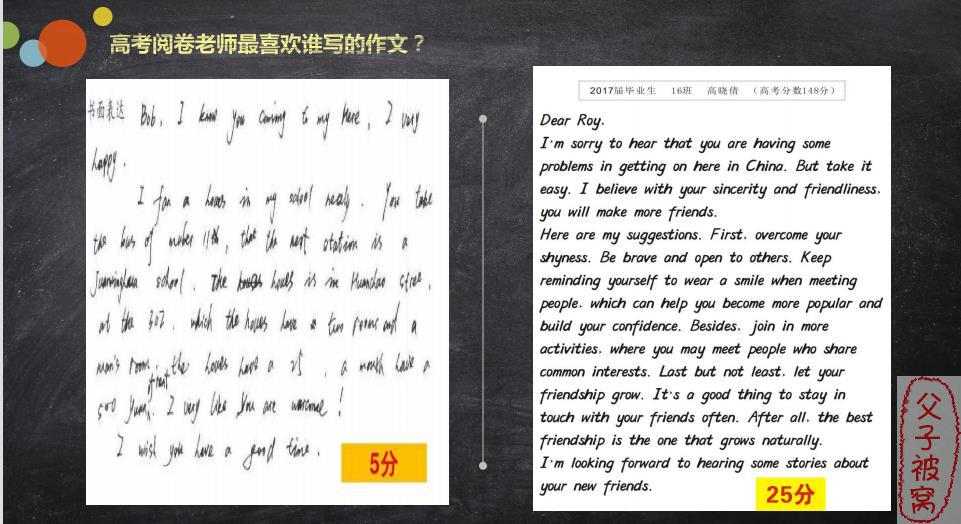 高考阅卷老师最喜欢谁写的作文？
书面表达 Bob, I know you coming to my here, I very
happy.
I fan a houes in my school nearly. You take
the bus of nuber 11th, that the next station is a
school. The houes is in Huanchao stree,
at the 302. which the houes have a two rooms and a
man's room, the houes have a 25, a month have a
500 Yuan. I very like You are warcome!
I wish you have a good time.
5分
2017届毕业生 16班 高晓倩 （高考分数148分）
Dear Roy,
I'm sorry to hear that you are having some
problems in getting on here in China. But take it
easy. I believe with your sincerity and friendliness,
you will make more friends.
Here are my suggestions. First, overcome your
shyness. Be brave and open to others. Keep
reminding yourself to wear a smile when meeting
people, which can help you become more popular and
build your confidence. Besides, join in more
activities, where you may meet people who share
common interests. Last but not least, let your
friendship grow. It's a good thing to stay in
touch with your friends often. After all, the best
friendship is the one that grows naturally.
I'm looking forward to hearing some stories about
your new friends.
25分
父子被窝